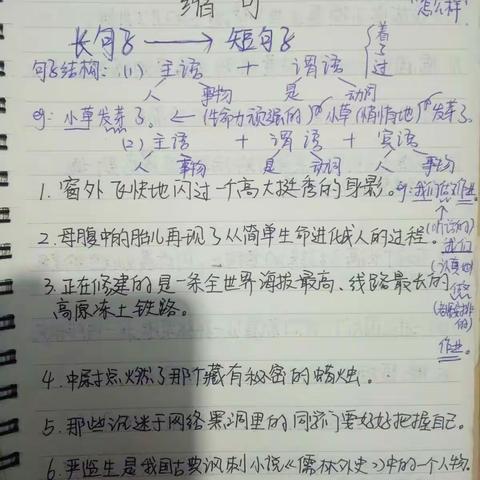 缩句
"怎么样"
长句子 → 短句子 { 着 了 过
句子结构: (1) 主语 + 谓语
人 事物 是 动词
eg: 小草发芽了。 ← (生命力顽强的) 小草 (悄悄地) 发芽了。
(2) 主语 + 谓语 + 宾语
人 事物 是 动词 人 事物
1. 窗外飞快地闪过一个高大挺秀的身影。
eg: 我们做作业。
2. 母腹中的胎儿再现了从简单生命进化成人的过程。
(听话的)
我们
3. 正在修建的是一条全世界海拔最高、线路最长的
(认真地)
做
高原冻土铁路。
的)
作业。
4. 中尉点燃了那个藏有秘密的蜡烛。
5. 那些沉迷于网络黑洞里的同学们要好好把握自己。
6. 严监生是我国古典讽刺小说《儒林外史》中的一个人物。